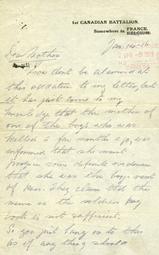 1st CANADIAN BATTALION,
Somewhere in FRANCE.
BELGIUM.
Jan. 14-16
Dear Mother:
Now don't be alarmed at
this addition to my letter, but
it has just come to my
knowledge that the mother of
one of the boys who was
killed a few months ago, was
informed that she must
produce some definite evidence
that she was the boys next
of kin. They claim that the
name in the soldiers pay
book is not sufficient.
So you just hang on to this
as if any thing should